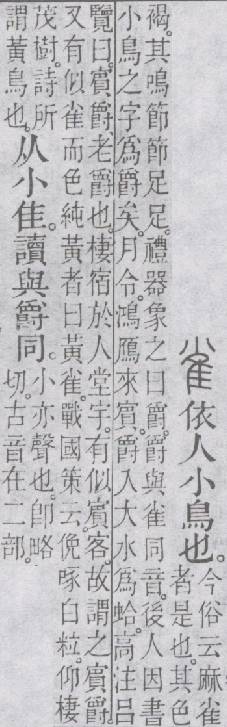 雀依人小鳥也。
今俗云麻雀
者是也。其色
褐。其鳴節節足足。禮器象之曰爵。爵與雀同音。後人因書
小鳥之字爲爵矣。月令。鴻鴈來賓。爵入大水爲蛤。高注呂
覽曰。賓爵、老爵也。棲宿於人堂宇。有似賓客。故謂之賓爵。
又有似雀而色純黃者曰黃雀。戰國策云。俛啄白粒。仰棲
茂樹。詩所
謂黃鳥也。
从小隹。讀與爵同。
小亦聲也。卽略
切。古音在二部。